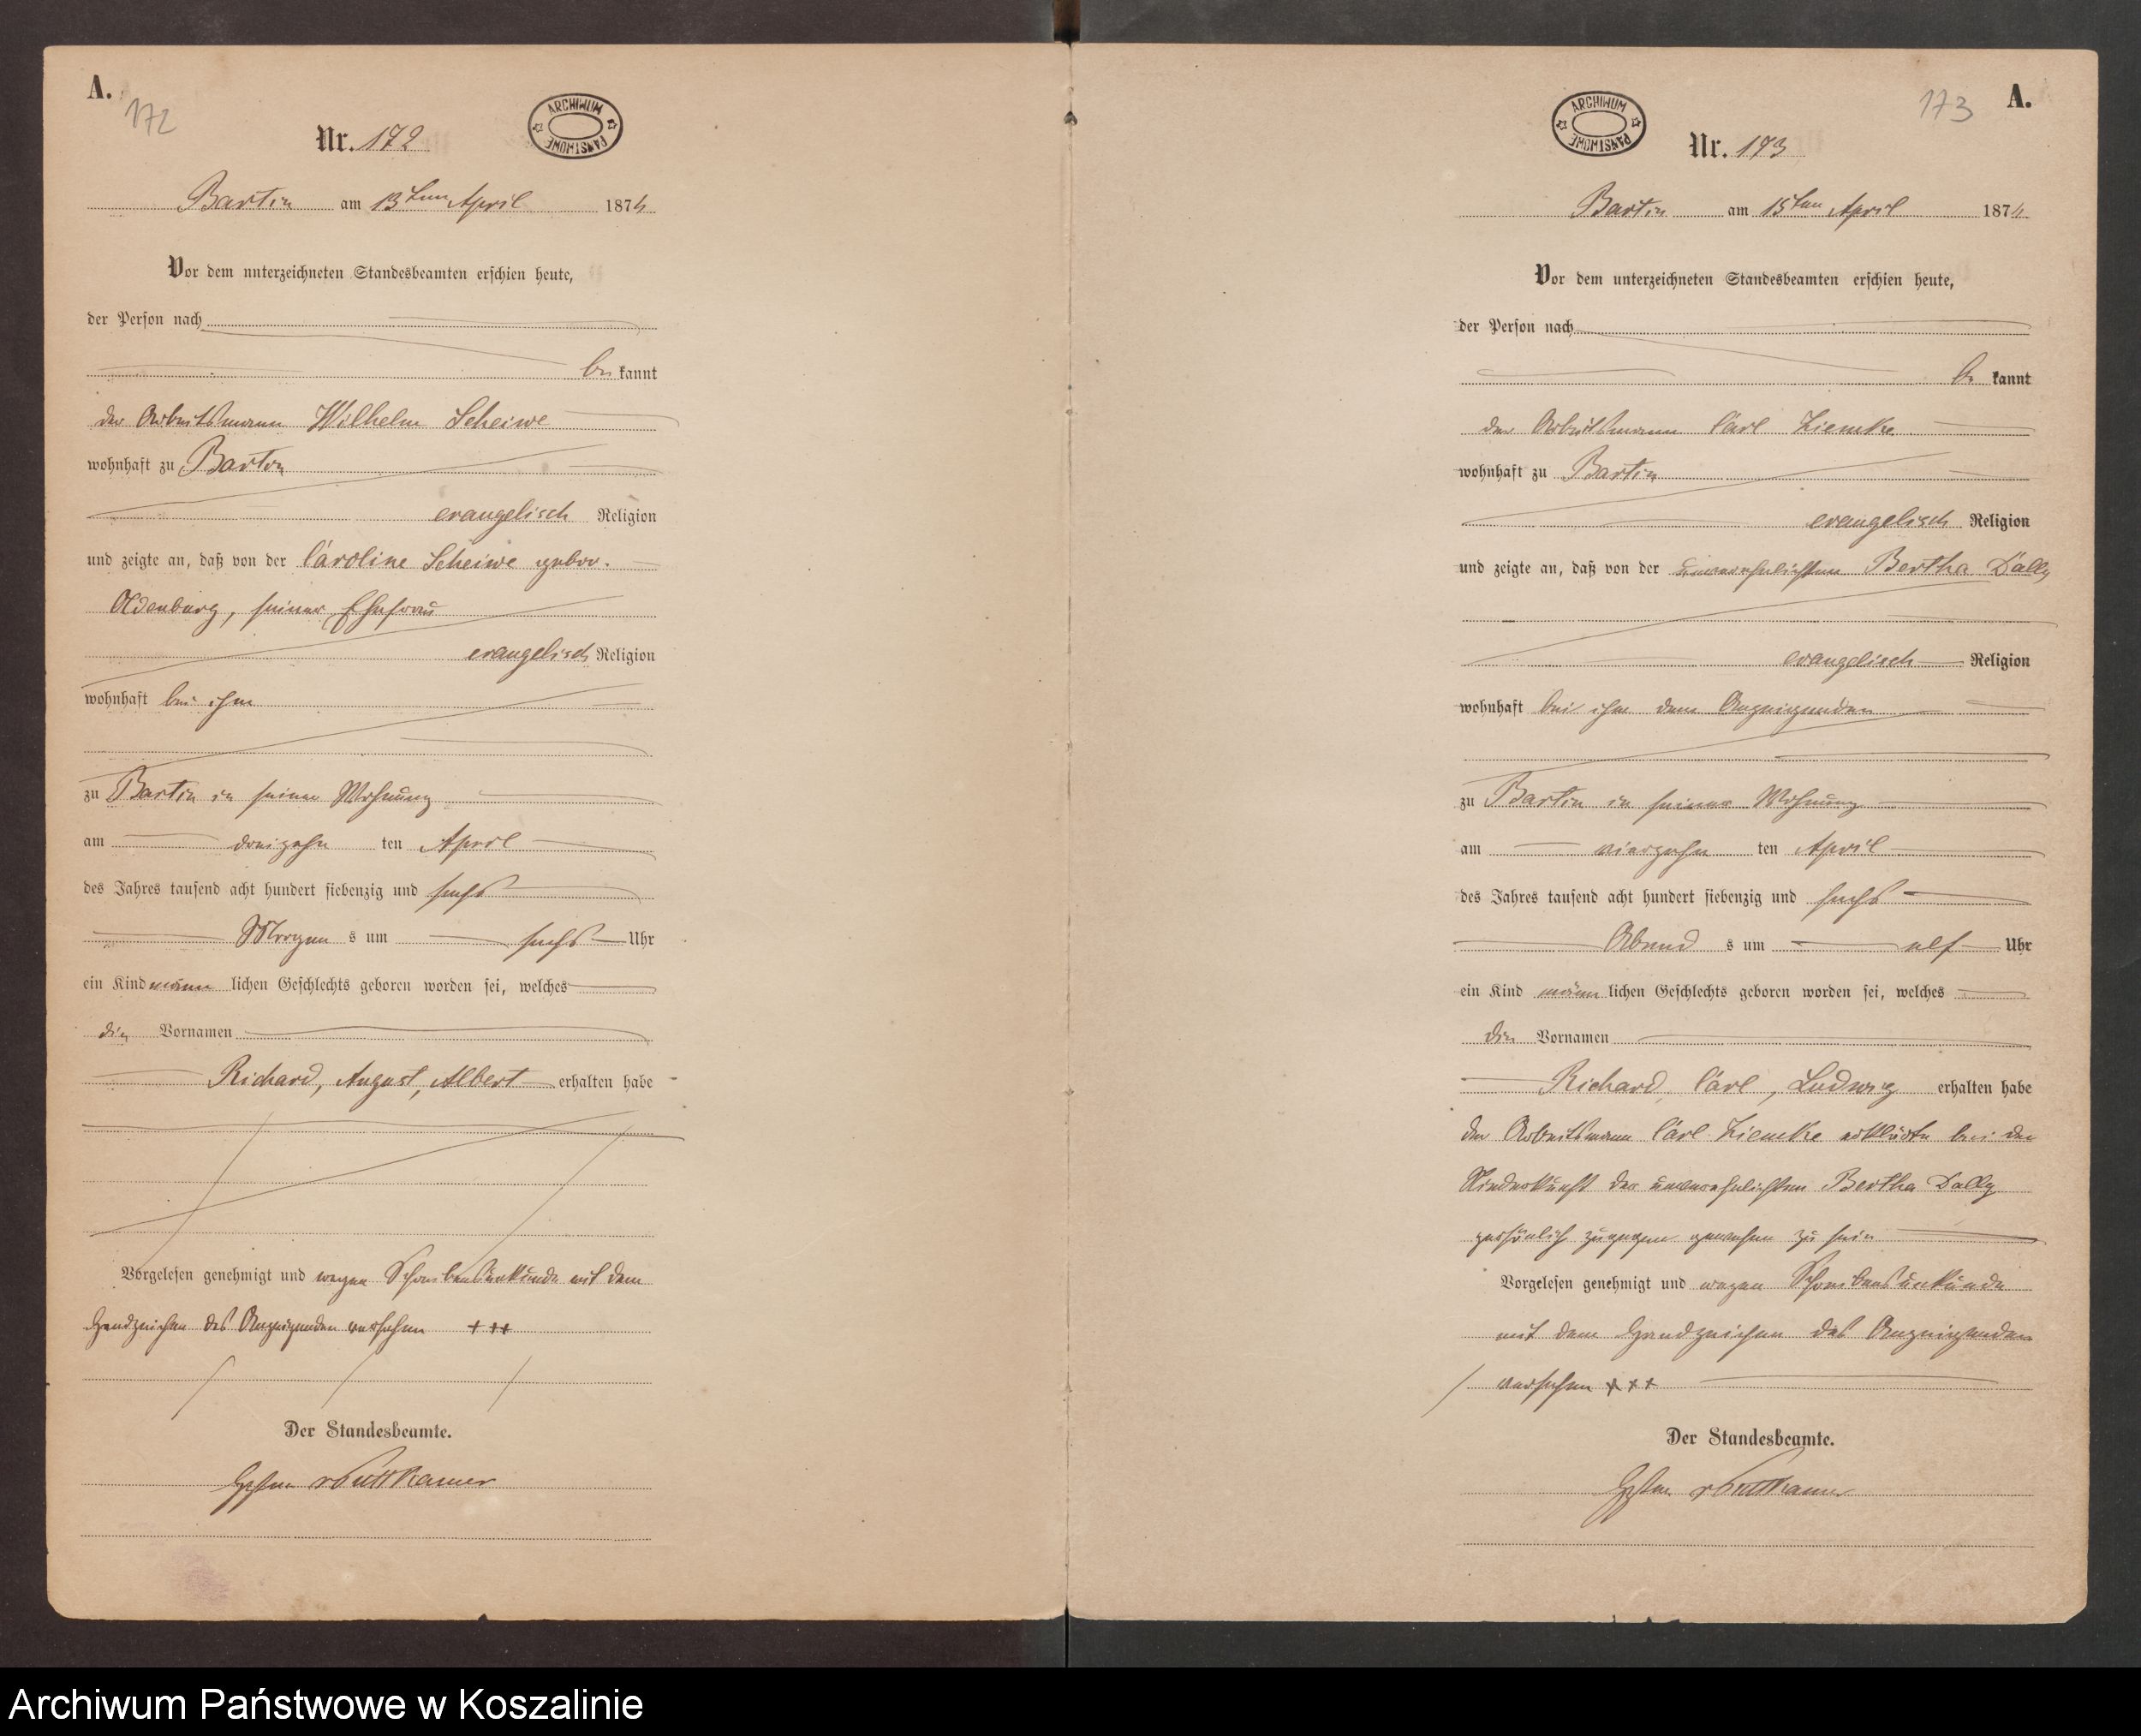 A.
172
Nr. 172
ARCHIWUM PAŃSTWOWE
Bartin am 13ten April 1876
Vor dem unterzeichneten Standesbeamten erschien heute,
der Person nach
be kannt
der Arbeitsmann Wilhelm Scheiwe
wohnhaft zu Bartin
evangelisch Religion
und zeigte an, daß von der Caroline Scheiwe gebor.
Oldenburg, seiner Ehefrau
evangelisch Religion
wohnhaft bei ihm
zu Bartin in seiner Wohnung
am dreizehn ten April
des Jahres tausend acht hundert siebenzig und sechs
Morgen s um sechs Uhr
ein Kind männ lichen Geschlechts geboren worden sei, welches
die Vornamen
Richard, August, Albert erhalten habe
Vorgelesen genehmigt und wegen Schreibensunkunde mit dem
Handzeichen des Anzeigenden versehen +++
Der Standesbeamte.
vPuttkamer
173
A.
ARCHIWUM PAŃSTWOWE
Nr. 173
Bartin am 15ten April 1876
Vor dem unterzeichneten Standesbeamten erschien heute,
der Person nach
be kannt
der Arbeitsmann Carl Ziemke
wohnhaft zu Bartin
evangelisch Religion
und zeigte an, daß von der unverehelichten Bertha Dally
evangelisch Religion
wohnhaft bei ihm dem Anzeigenden
zu Bartin in seiner Wohnung
am vierzehn ten April
des Jahres tausend acht hundert siebenzig und sechs
Abend s um elf Uhr
ein Kind männ lichen Geschlechts geboren worden sei, welches
die Vornamen
Richard, Carl, Ludwig erhalten habe
der Arbeitsmann Carl Ziemke erklärte bei der
Niederkunft der unverehelichten Bertha Dally
persönlich zugegen gewesen zu sein
Vorgelesen genehmigt und wegen Schreibensunkunde
mit dem Handzeichen des Anzeigenden
versehen +++
Der Standesbeamte.
vPuttkamer
Archiwum Państwowe w Koszalinie